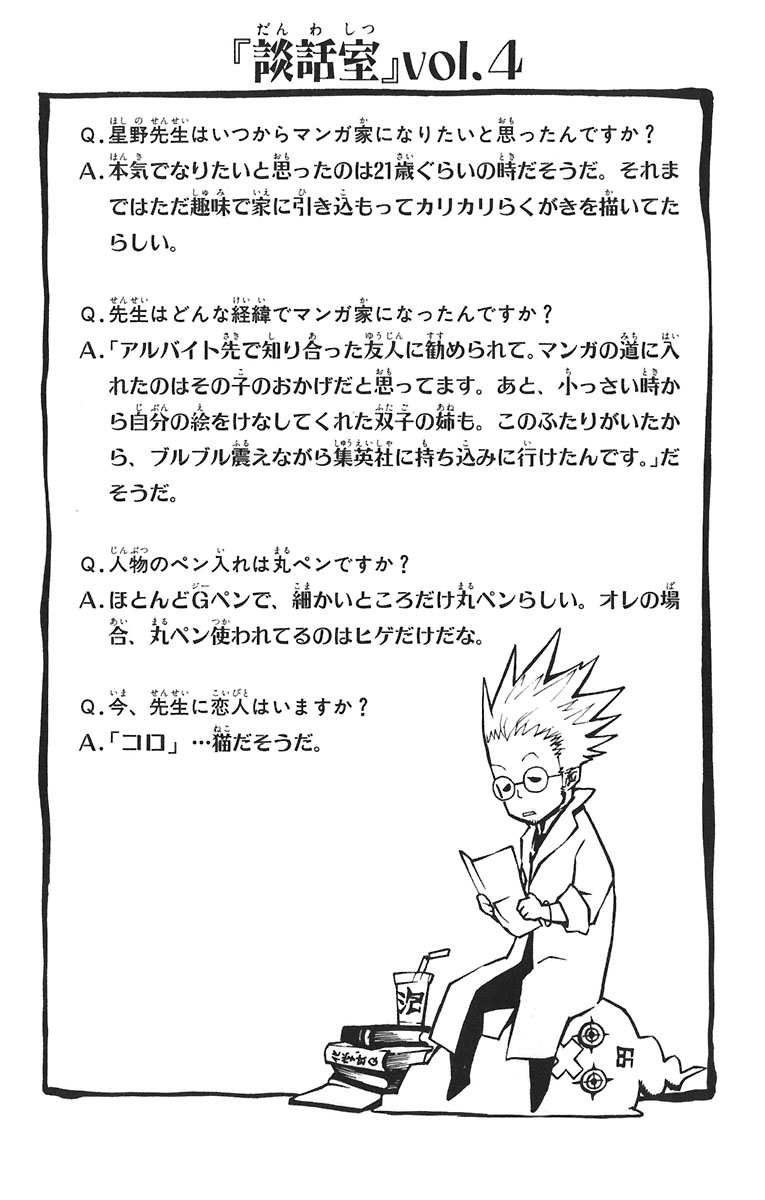 『談話室』vol.4
Q.星野先生はいつからマンガ家になりたいと思ったんですか？
A.本気でなりたいと思ったのは21歳ぐらいの時だそうだ。それま
ではただ趣味で家に引き込もってカリカリらくがきを描いてた
らしい。
Q.先生はどんな経緯でマンガ家になったんですか？
A.「アルバイト先で知り合った友人に勧められて。マンガの道に入
れたのはその子のおかげだと思ってます。あと、小っさい時か
ら自分の絵をけなしてくれた双子の姉も。このふたりがいたか
ら、ブルブル震えながら集英社に持ち込みに行けたんです。」だ
そうだ。
Q.人物のペン入れは丸ペンですか？
A.ほとんどGペンで、細かいところだけ丸ペンらしい。オレの場
合、丸ペン使われてるのはヒゲだけだな。
Q.今、先生に恋人はいますか？
A.「コロ」…猫だそうだ。
泡